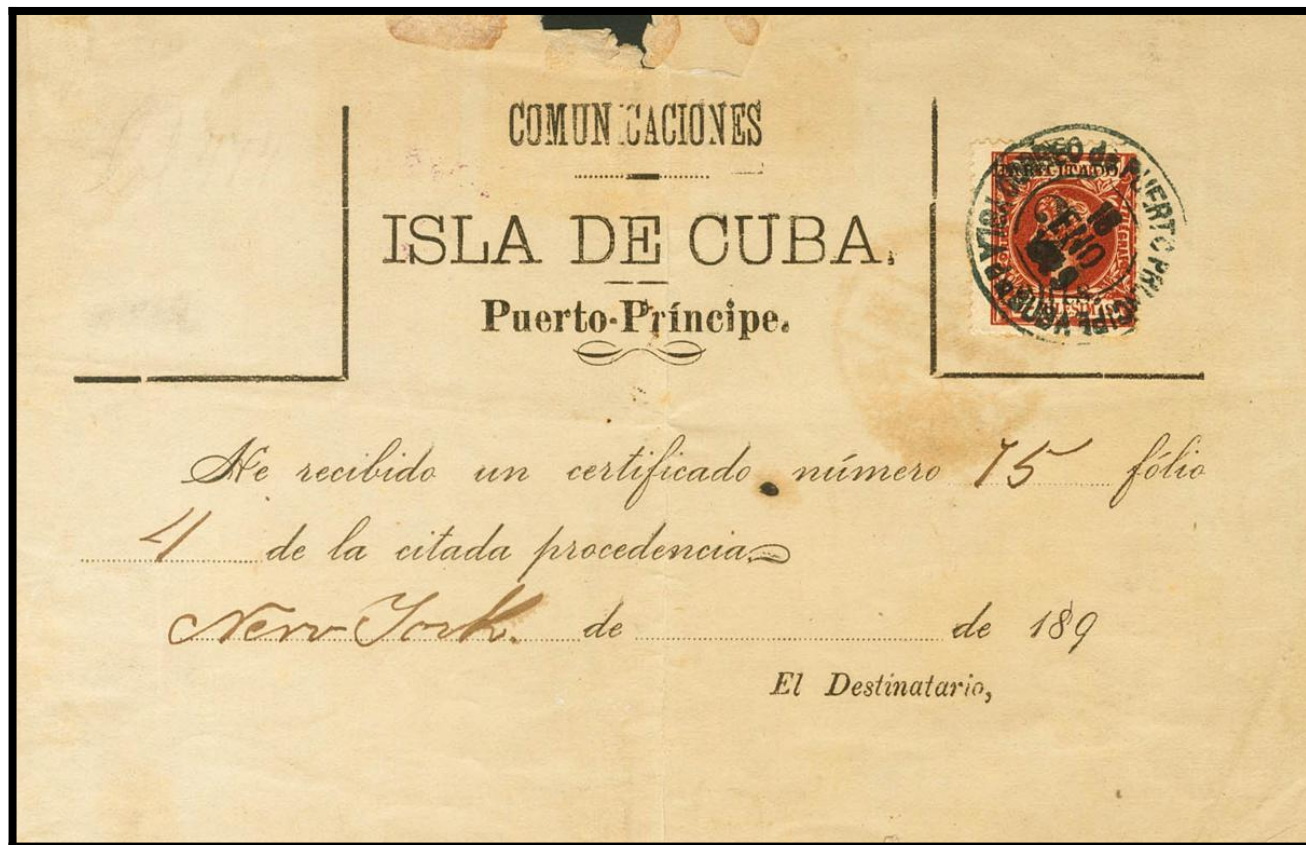 COMUNICACIONES
ISLA DE CUBA.
Puerto-Príncipe.
CORREO de PUERTO PRINCIPE
ISLA de CUBA
ENO
He recibido un certificado número 75 fólio
4 de la citada procedencia
New York. de de 189
El Destinatario,